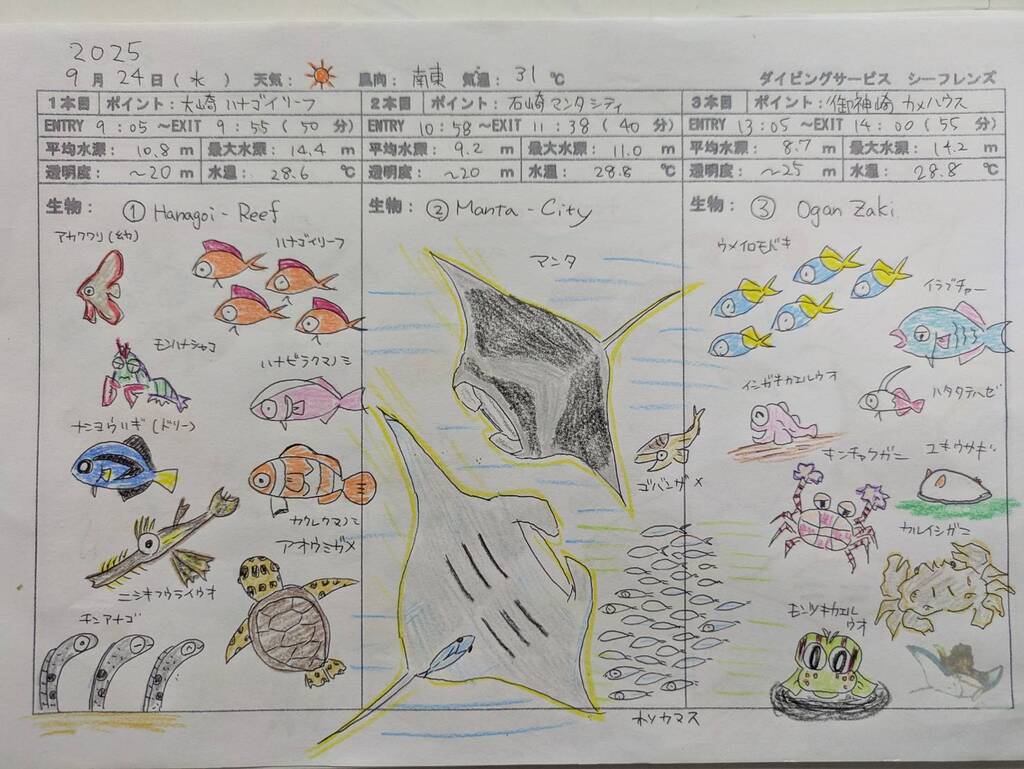 2025
9月24日(水) 天気: 風向: 南東 気温: 31℃ ダイビングサービス シーフレンズ
1本目 ポイント: 大崎ハナゴイリーフ
ENTRY 9:05~EXIT 9:55(50分)
平均水深: 10.8m 最大水深: 14.4m
透明度: ~20m 水温: 28.6℃
生物: ① Hanagoi-Reef
アカククリ(幼)
ハナゴイリーフ
モンハナシャコ
ハナビラクマノミ
ナンヨウハギ(ドリー)
カクレクマノミ
アオウミガメ
ニシキフウライウオ
チンアナゴ
2本目 ポイント: 石崎マンタシティ
ENTRY 10:58~EXIT 11:38(40分)
平均水深: 9.2m 最大水深: 11.0m
透明度: ~20m 水温: 28.8℃
生物: ② Manta-City
マンタ
ゴバンガメ
ホソカマス
3本目 ポイント: 御神崎カメハウス
ENTRY 13:05~EXIT 14:00(55分)
平均水深: 8.7m 最大水深: 14.2m
透明度: ~25m 水温: 28.8℃
生物: ③ Ogan Zaki
ウメイロモドキ
イラブチャー
イシガキカエルウオ
ハタタテハゼ
キンチャクガニ
ユキウサギ
カルイシガニ
モンツキカエル
ウオ